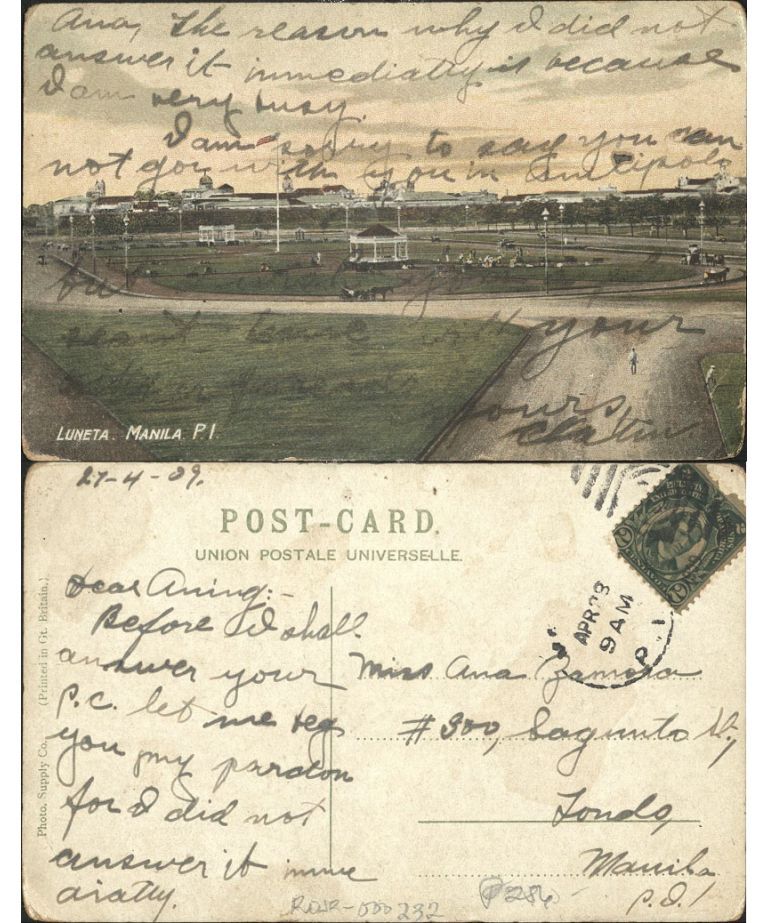 Ana, the reason why I did not
answer it immediatly is because
I am very busy.
I am sorry to say you can
not gou with you in Antipolo
but
your
yours,
LUNETA. MANILA P.I
27-4-09.
POST-CARD.
UNION POSTALE UNIVERSELLE.
Photo. Supply Co. (Printed in Gt. Britain.)
Dear Aning:-
Before I shall
answer your
P.C. let me beg
you my pardon
for I did not
answer it imme
diatly.
APR 28
9 AM
P. I.
Miss Ana Zamora
#300, Sagunto St,
Tondo,
Manila
P.I.
RDWR-000232
P286